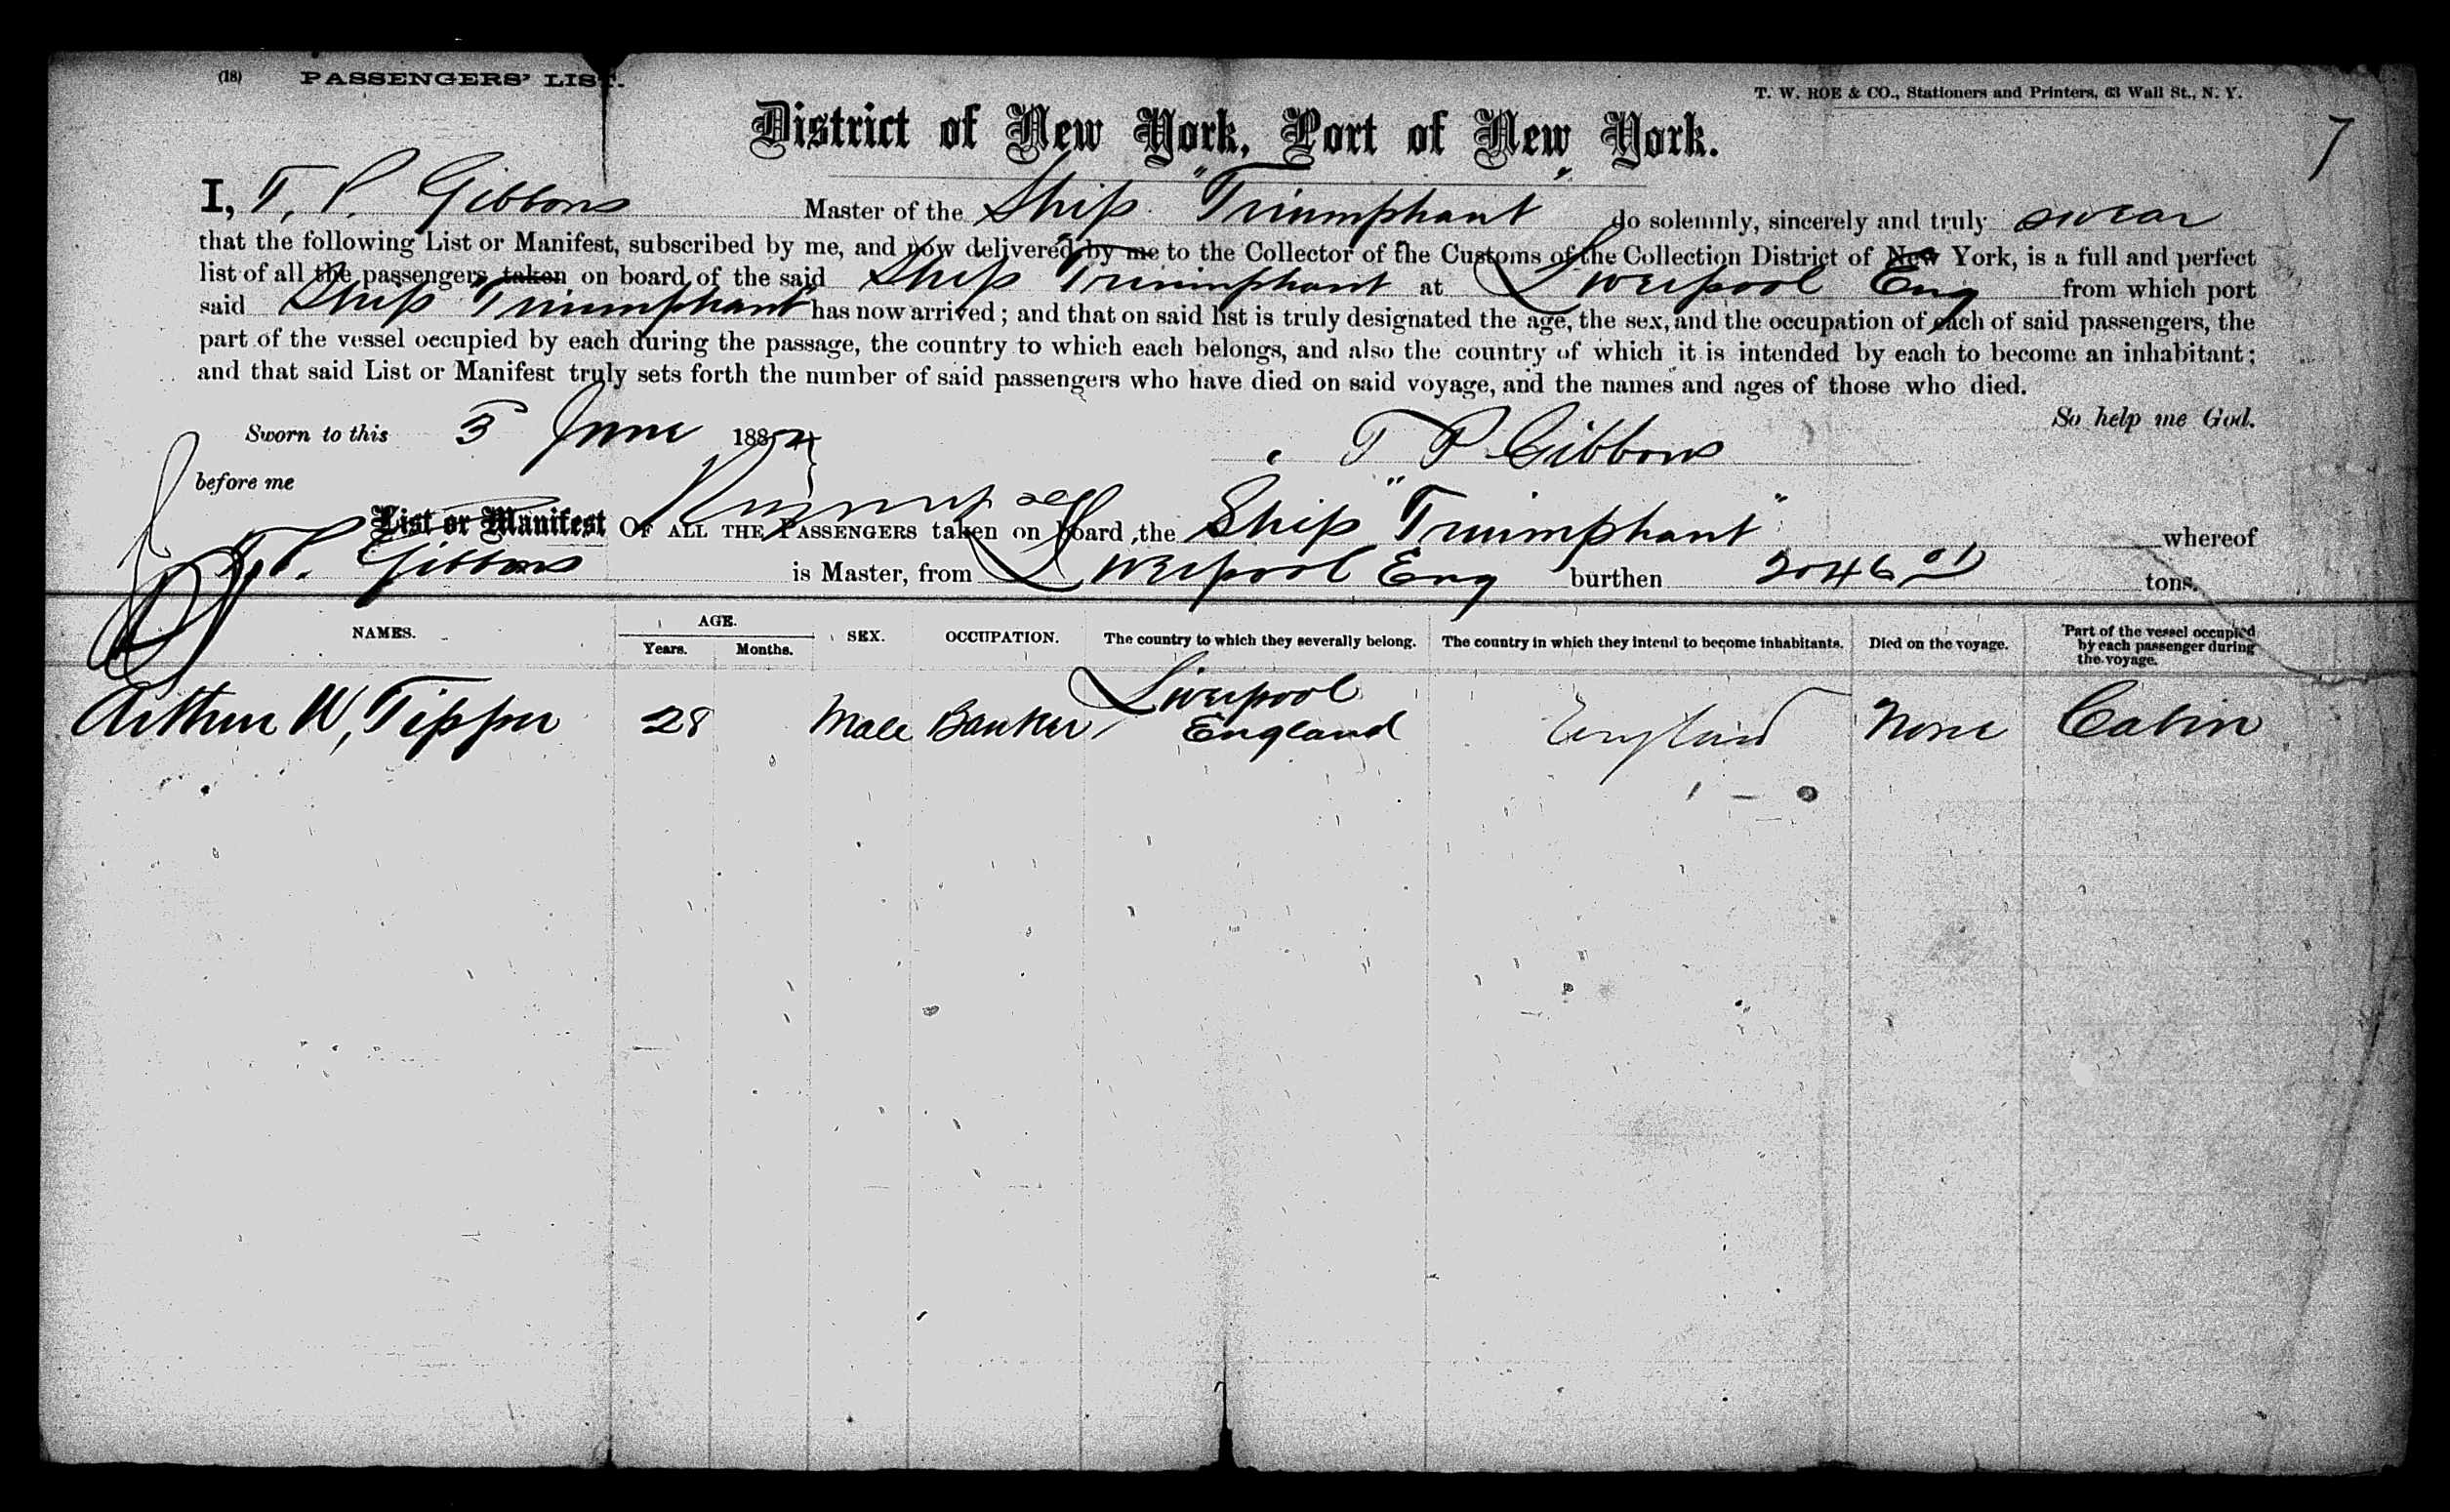 (18) PASSENGERS' LIST.
T. W. ROE & CO., Stationers and Printers, 63 Wall St., N. Y.
7
District of New York, Port of New York.
I, T. P. Gibbons Master of the Ship "Triumphant" do solemnly, sincerely and truly swear
that the following List or Manifest, subscribed by me, and now delivered by me to the Collector of the Customs of the Collection District of New York, is a full and perfect
list of all the passengers taken on board of the said Ship Triumphant at Liverpool Eng from which port
said Ship "Triumphant" has now arrived; and that on said list is truly designated the age, the sex, and the occupation of each of said passengers, the
part of the vessel occupied by each during the passage, the country to which each belongs, and also the country of which it is intended by each to become an inhabitant;
and that said List or Manifest truly sets forth the number of said passengers who have died on said voyage, and the names and ages of those who died.
So help me God.
Sworn to this 3 June 1884
T P Gibbons
before me
List or Manifest OF ALL THE PASSENGERS taken on board the Ship "Triumphant" whereof
T. P. Gibbons is Master, from Liverpool Eng burthen 2046 tons.
NAMES. AGE. Years. Months. SEX. OCCUPATION. The country to which they severally belong. The country in which they intend to become inhabitants. Died on the voyage. Part of the vessel occupied by each passenger during the voyage.
Arthur W, Tipper 28 Male Banker Liverpool England England None Cabin